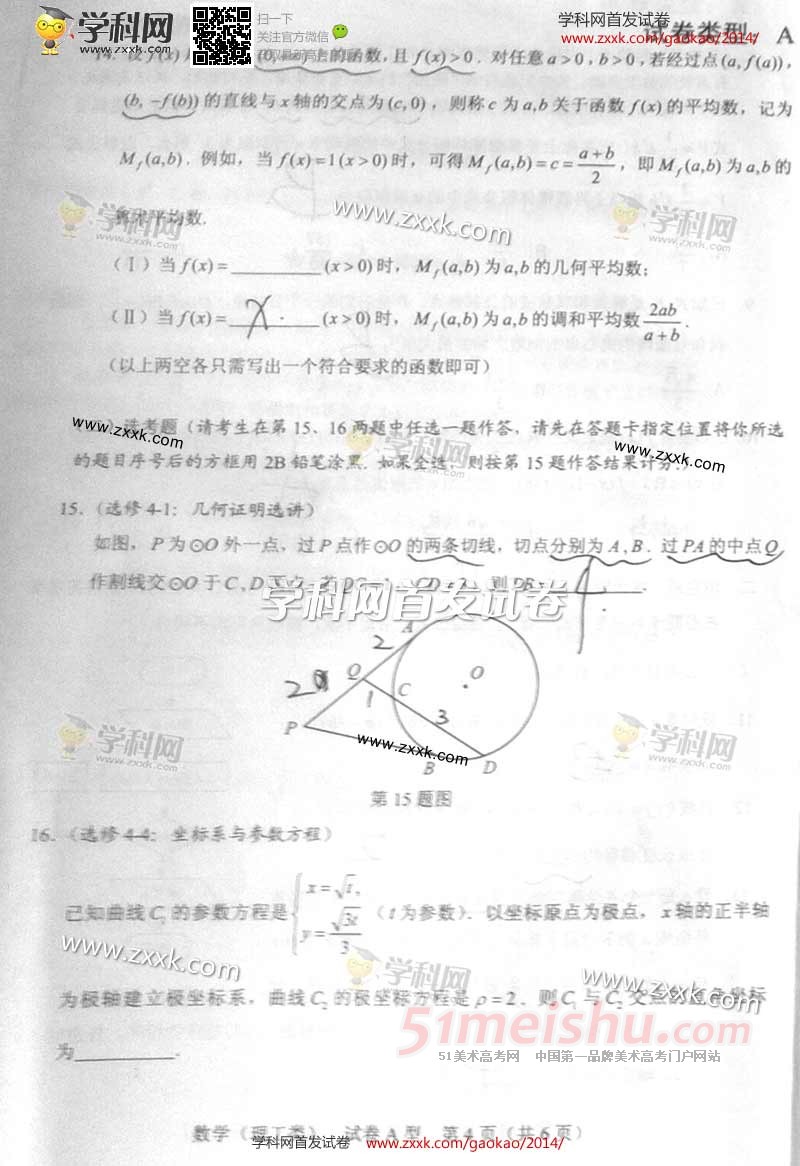 学科网
www.zxxk.com
扫一下
关注官方微信
学科网首发试卷
www.zxxk.com/gaokao/2014/
试卷类型: A
上的函数,且 f(x)>0. 对任意 a>0, b>0, 若经过点 (a, f(a)),
(b, -f(b)) 的直线与 x 轴的交点为 (c, 0), 则称 c 为 a,b 关于函数 f(x) 的平均数, 记为
M_f(a,b). 例如, 当 f(x)=1(x>0) 时, 可得 M_f(a,b)=c=(a+b)/2, 即 M_f(a,b) 为 a,b 的
平均数.
www.zxxk.com
学科网
zxxk.com
学科网
zxxk.com
(Ⅰ) 当 f(x)=________(x>0) 时, M_f(a,b) 为 a,b 的几何平均数;
(Ⅱ) 当 f(x)=___x___(x>0) 时, M_f(a,b) 为 a,b 的调和平均数 2ab/(a+b).
(以上两空各只需写出一个符合要求的函数即可)
选考题 (请考生在第 15、16 两题中任选一题作答, 请先在答题卡指定位置将你所选
www.zxxk.com
学科网
www.zxxk.com
的题目序号后的方框用 2B 铅笔涂黑. 如果全选, 则按第 15 题作答结果计分.)
15. (选修 4-1: 几何证明选讲)
如图, P 为 ⊙O 外一点, 过 P 点作 ⊙O 的两条切线, 切点分别为 A, B. 过 PA 的中点 Q
作割线交 ⊙O 于 C, D 则 PB= 4
学科网首发试卷
A
2
Q
O
2
1
C
3
P
www.zxxk.com
B
D
学科网
zxxk.com
学科网
zxxk.com
第 15 题图
16. (选修 4-4: 坐标系与参数方程)
已知曲线 C₁ 的参数方程是 { x=√t, y=√(3t)/3 (t 为参数). 以坐标原点为极点, x 轴的正半轴
www.zxxk.com
学科网
zxxk.com
www.zxxk.com
为极轴建立极坐标系, 曲线 C₂ 的极坐标方程是 ρ=2. 则 C₁ 与 C₂ 交点的直角坐标
为________.
51meishu.com
51美术高考网 中国第一品牌美术高考门户网站
数学 (理工类) 试卷 A 型 第 4 页 (共 6 页)
学科网首发试卷
www.zxxk.com/gaokao/2014/